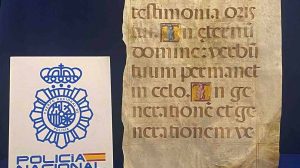 testimonia oris
tui. In eternū
domine: verbū
tuum permanet
in celo. In ge
neratione et ge
nerationem ve
POLICIA
NACIONAL